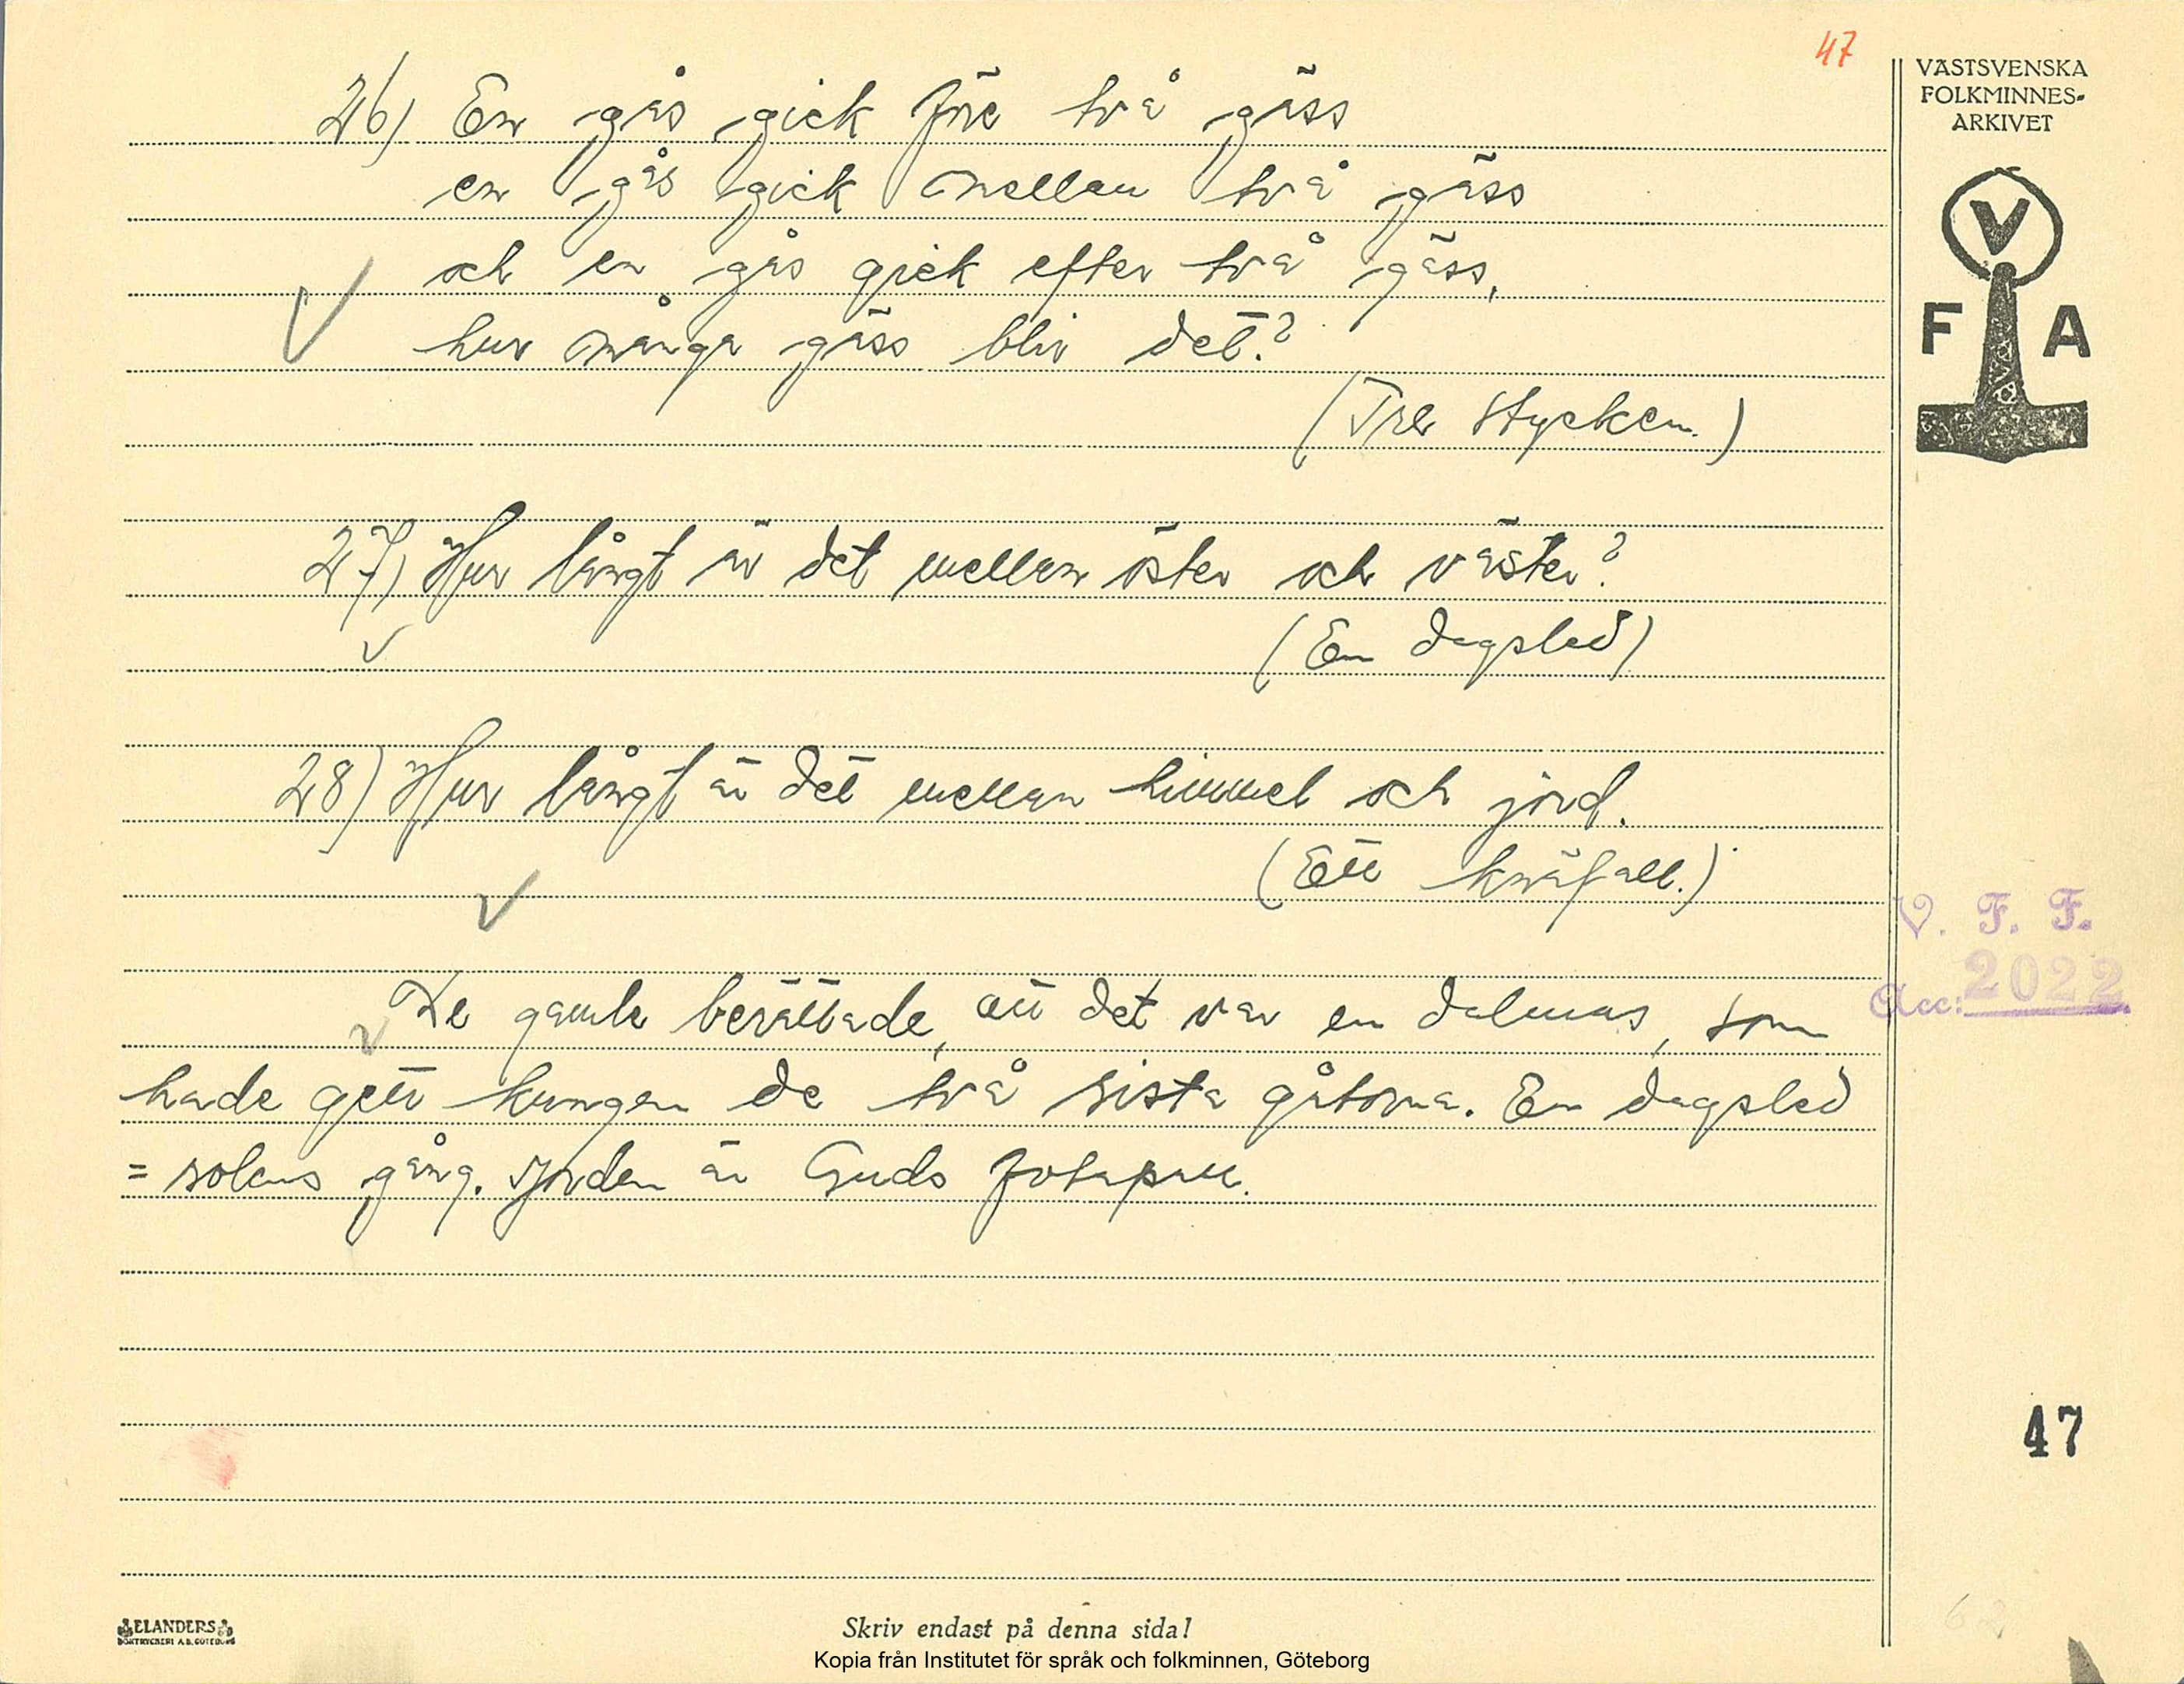 47
VÄSTSVENSKA
FOLKMINNES-
ARKIVET
V
F A
26) En gås gick före två gäss
en gås gick mellan två gäss
och en gås gick efter två gäss,
hur många gäss blir det?
(Tre stycken.)
27) Hur långt är det mellan öster och väster?
(En dagsled)
28) Hur långt är det mellan himmel och jord.
(Ett knäfall.)
V. F. F.
Acc: 2022
De gamle berättade, att det var en dalmas, som
hade gett kungen de två sista gåtorna. En dagsled
= solens gång. Jorden är Guds fotapall.
47
ELANDERS
BOKTRYCKERI A.B. GÖTEBORG
Skriv endast på denna sida!
Kopia från Institutet för språk och folkminnen, Göteborg